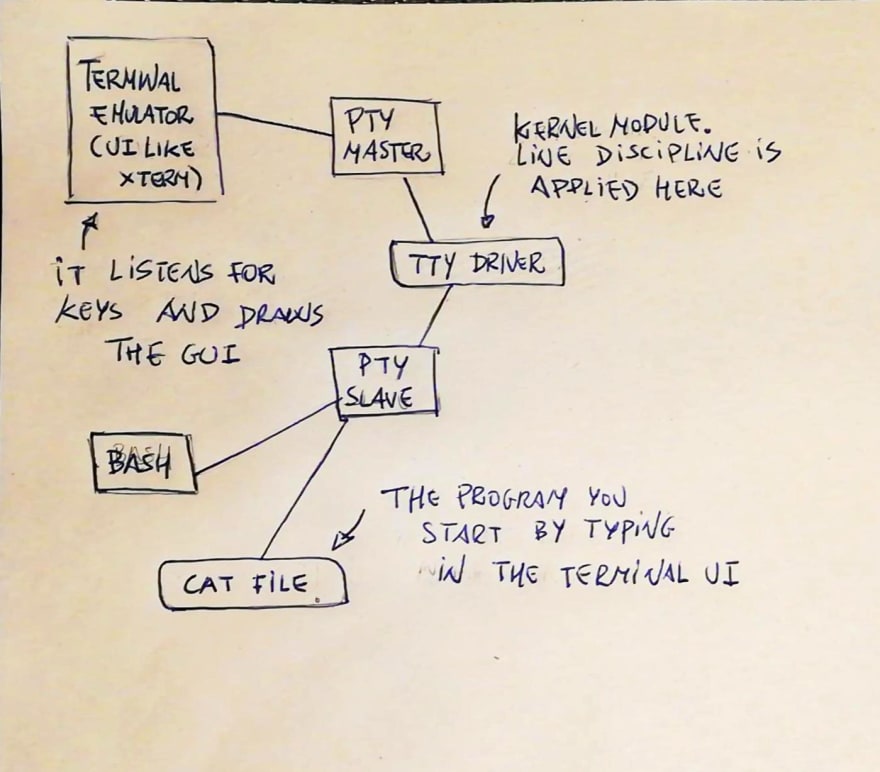 TERMINAL
EMULATOR
(UI LIKE
XTERM)
PTY
MASTER
KERNEL MODULE.
LINE DISCIPLINE IS
APPLIED HERE
TTY DRIVER
IT LISTENS FOR
KEYS AND DRAWS
THE GUI
PTY
SLAVE
BASH
THE PROGRAM YOU
START BY TYPING
IN THE TERMINAL UI
CAT FILE